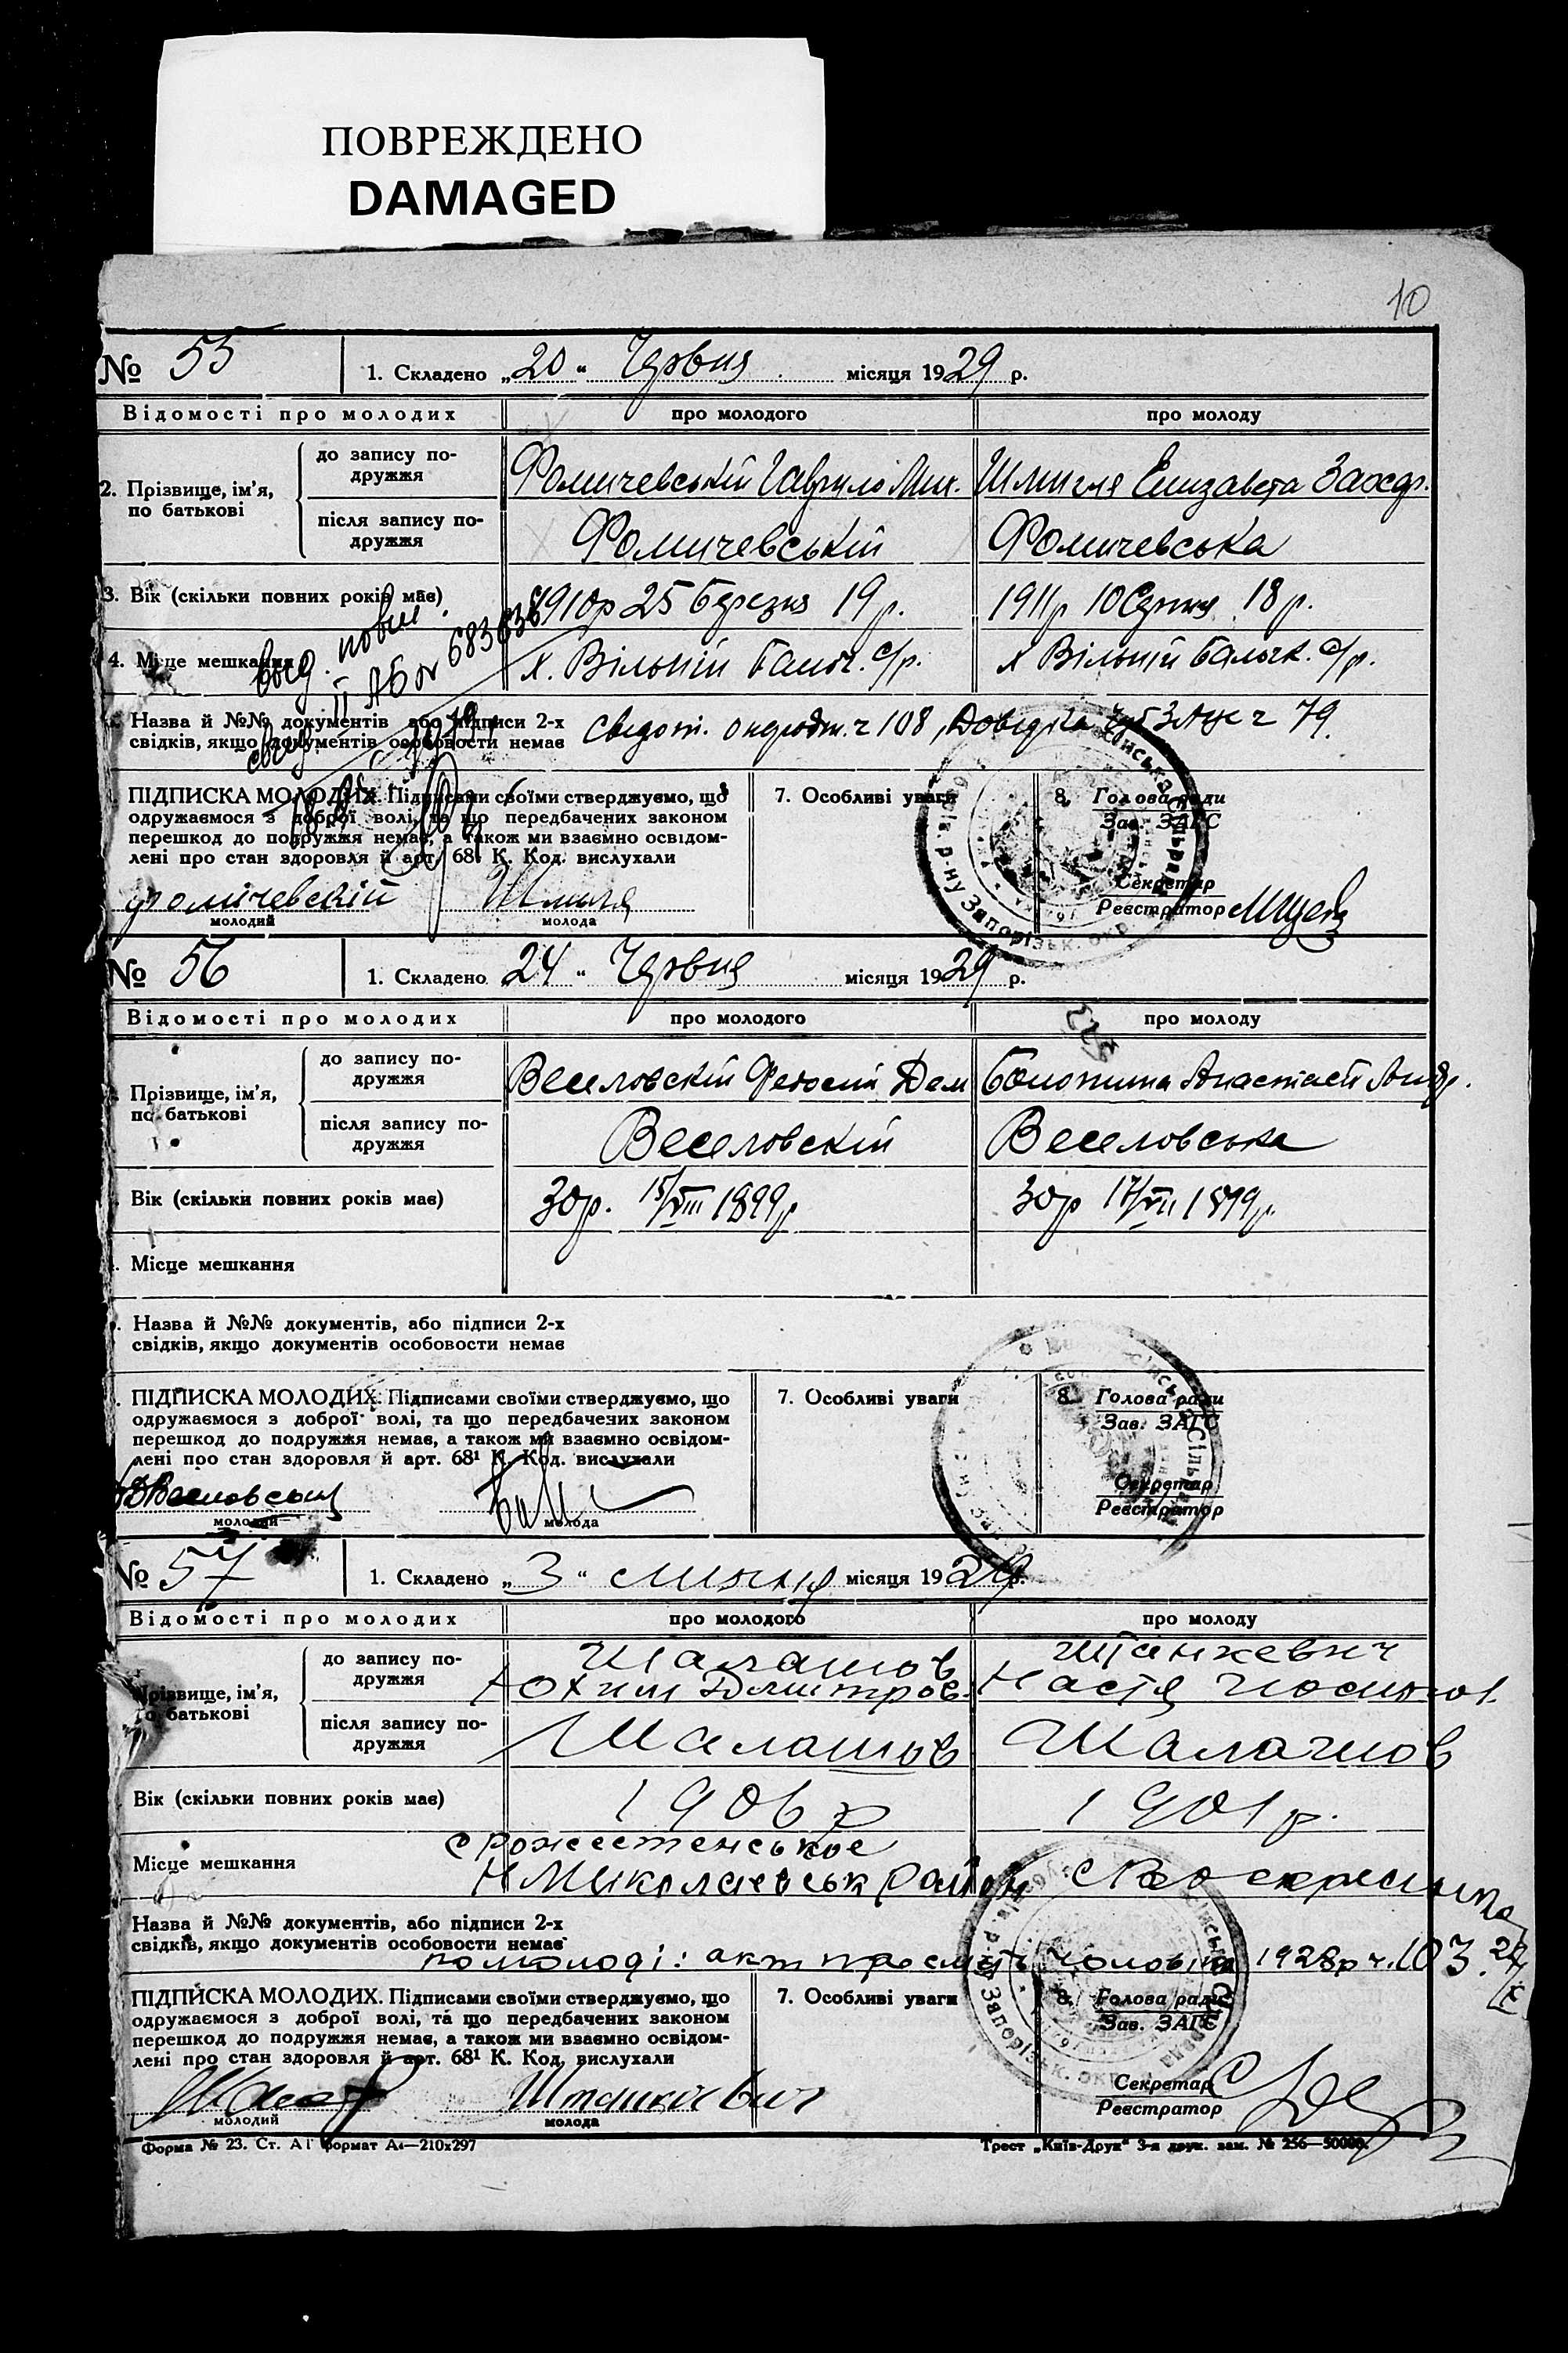 ПОВРЕЖДЕНО
DAMAGED
10
№ 55 1. Складено „20“ Червня місяця 1929 р.
Відомості про молодих про молодого про молоду
2. Прізвище, ім'я, по батькові
до запису подружжя Фомичевській Гаврило Мих. Шмигля Елизавета Захар.
після запису подружжя Фомичевській Фомичевська
3. Вік (скільки повних років має) 1910р 25 березня 19 р. 1911р 10 Серпня 18 р.
4. Місце мешкання х. Вільний с/р. х Вільний с/р.
Назва й №№ документів або підписи 2-х
свідків, якщо документів особовости немає ч 108, Довідка ч 79.
повт.
II АБ № 683636
ПІДПИСКА МОЛОДИХ. Підписами своїми стверджуємо, що
одружаємося з доброї волі, та що передбачених законом
перешкод до подружжя немає, а також ми взаємно освідом-
лені про стан здоровля й арт. 68¹ К. Код. вислухали
7. Особливі уваги
8. Голова ради
Зав. ЗАГС
Секретар
Реєстратор
Фомічевскій Шмигля
молодий молода
№ 56 1. Складено 24“ Червня місяця 1929 р.
Відомості про молодих про молодого про молоду
Прізвище, ім'я, по батькові
до запису подружжя Веселовскій Федосій Дем Анастасія Андр.
після запису подружжя Веселовскій Веселовська
Вік (скільки повних років має) 30р. 15/VIII 1899р 30р 17/VII 1899р.
Місце мешкання
Назва й №№ документів, або підписи 2-х
свідків, якщо документів особовости немає
ПІДПИСКА МОЛОДИХ. Підписами своїми стверджуємо, що
одружаємося з доброї волі, та що передбачених законом
перешкод до подружжя немає, а також ми взаємно освідом-
лені про стан здоровля й арт. 68¹ К. Код. вислухали
7. Особливі уваги
8. Голова ради
Зав. ЗАГС
Секретар
Реєстратор
молодий молода
№ 57 1. Складено „3“ липня місяця 1929 р.
Відомості про молодих про молодого про молоду
Прізвище, ім'я, по батькові
до запису подружжя Шалашов Штанкевич
Юхим Дмитров. Настя
після запису подружжя Шалашов Шалашов
Вік (скільки повних років має) 1906 р 1901 р.
с Рожественськое
Місце мешкання Н Миколаевськ район с Воскресінка
Назва й №№ документів, або підписи 2-х
свідків, якщо документів особовости немає
по молоді: акт про смерть чоловіка 1928р ч. 103.
ПІДПИСКА МОЛОДИХ. Підписами своїми стверджуємо, що
одружаємося з доброї волі, та що передбачених законом
перешкод до подружжя немає, а також ми взаємно освідом-
лені про стан здоровля й арт. 68¹ К. Код. вислухали
7. Особливі уваги
8. Голова ради
Зав. ЗАГС
Секретар
Реєстратор
Штанкевич
молодий молода
Форма № 23. Ст. А1 Формат А4—210х297 Трест „Київ-Друк“ 3-я друк. зам. № 256—50000.